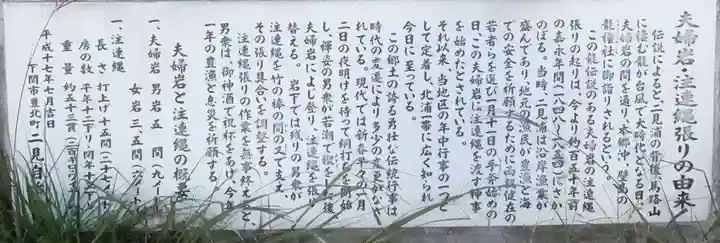 夫婦岩・注連縄張りの由来
伝説によると、二見浦の背後、馬路山
に棲む龍が台風で大時化となる日、
夫婦岩の間を通り、本郷沖、壁島の
龍権社に御詣りされるという。
この龍伝説のある夫婦岩の注連縄
張りの起りは、今より約百五十年前
の嘉永年間(一八四八～一八五四)にさか
のぼる。当時、二見浦は沿岸漁業が
盛んであり、地元の漁民が豊漁と海
での安全を祈願するために両親健在の
若者らを選び一月十一日の手斧始めの
日、この夫婦岩に注連縄を渡す神事
を始めたとされている。
それ以来、当地区の年中行事の一つと
して定着し、北浦一帯に広く知られ
今日に至っている。
この郷土の誇る勇壮な伝統行事は
時代の変遷により多少の変更がなさ
れている。現在では新春早々の一月
二日の夜明けを待って綯打ちを開始
し、褌姿の男衆が若潮で禊をした後
夫婦岩によじ登り、注連縄を張り
替える。岩下では残りの男衆が
注連縄を竹の棒の間の叉で支え
その張り具合いを調整する。
注連縄張りの作業を無事終えた
男衆は、御神酒で祝杯をあげ、今年
一年の豊漁と息災を祈願する。
夫婦岩と注連縄の概要
一、夫婦岩 男岩 五 間 (九メートル)
女岩 三、五間 (六メートル)
一、注連縄
長 さ 打上げ十五間 (二十七メートル)
房の数 平年十二下り 閏年十三下り
重 量 約五十三貫
平成十七年七月吉日
下関市豊北町 二見自